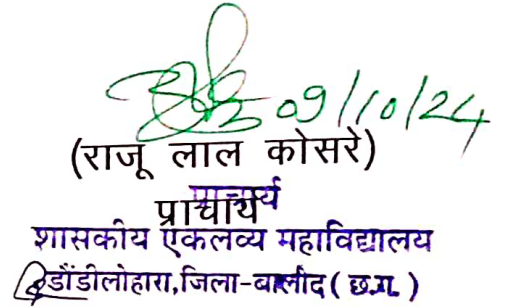 09/10/24
(राजू लाल कोसरे)
प्राचार्य
प्राचार्य
शासकीय एकलव्य महाविद्यालय
डौंडीलोहारा,जिला-बालोद (छ.ग.)